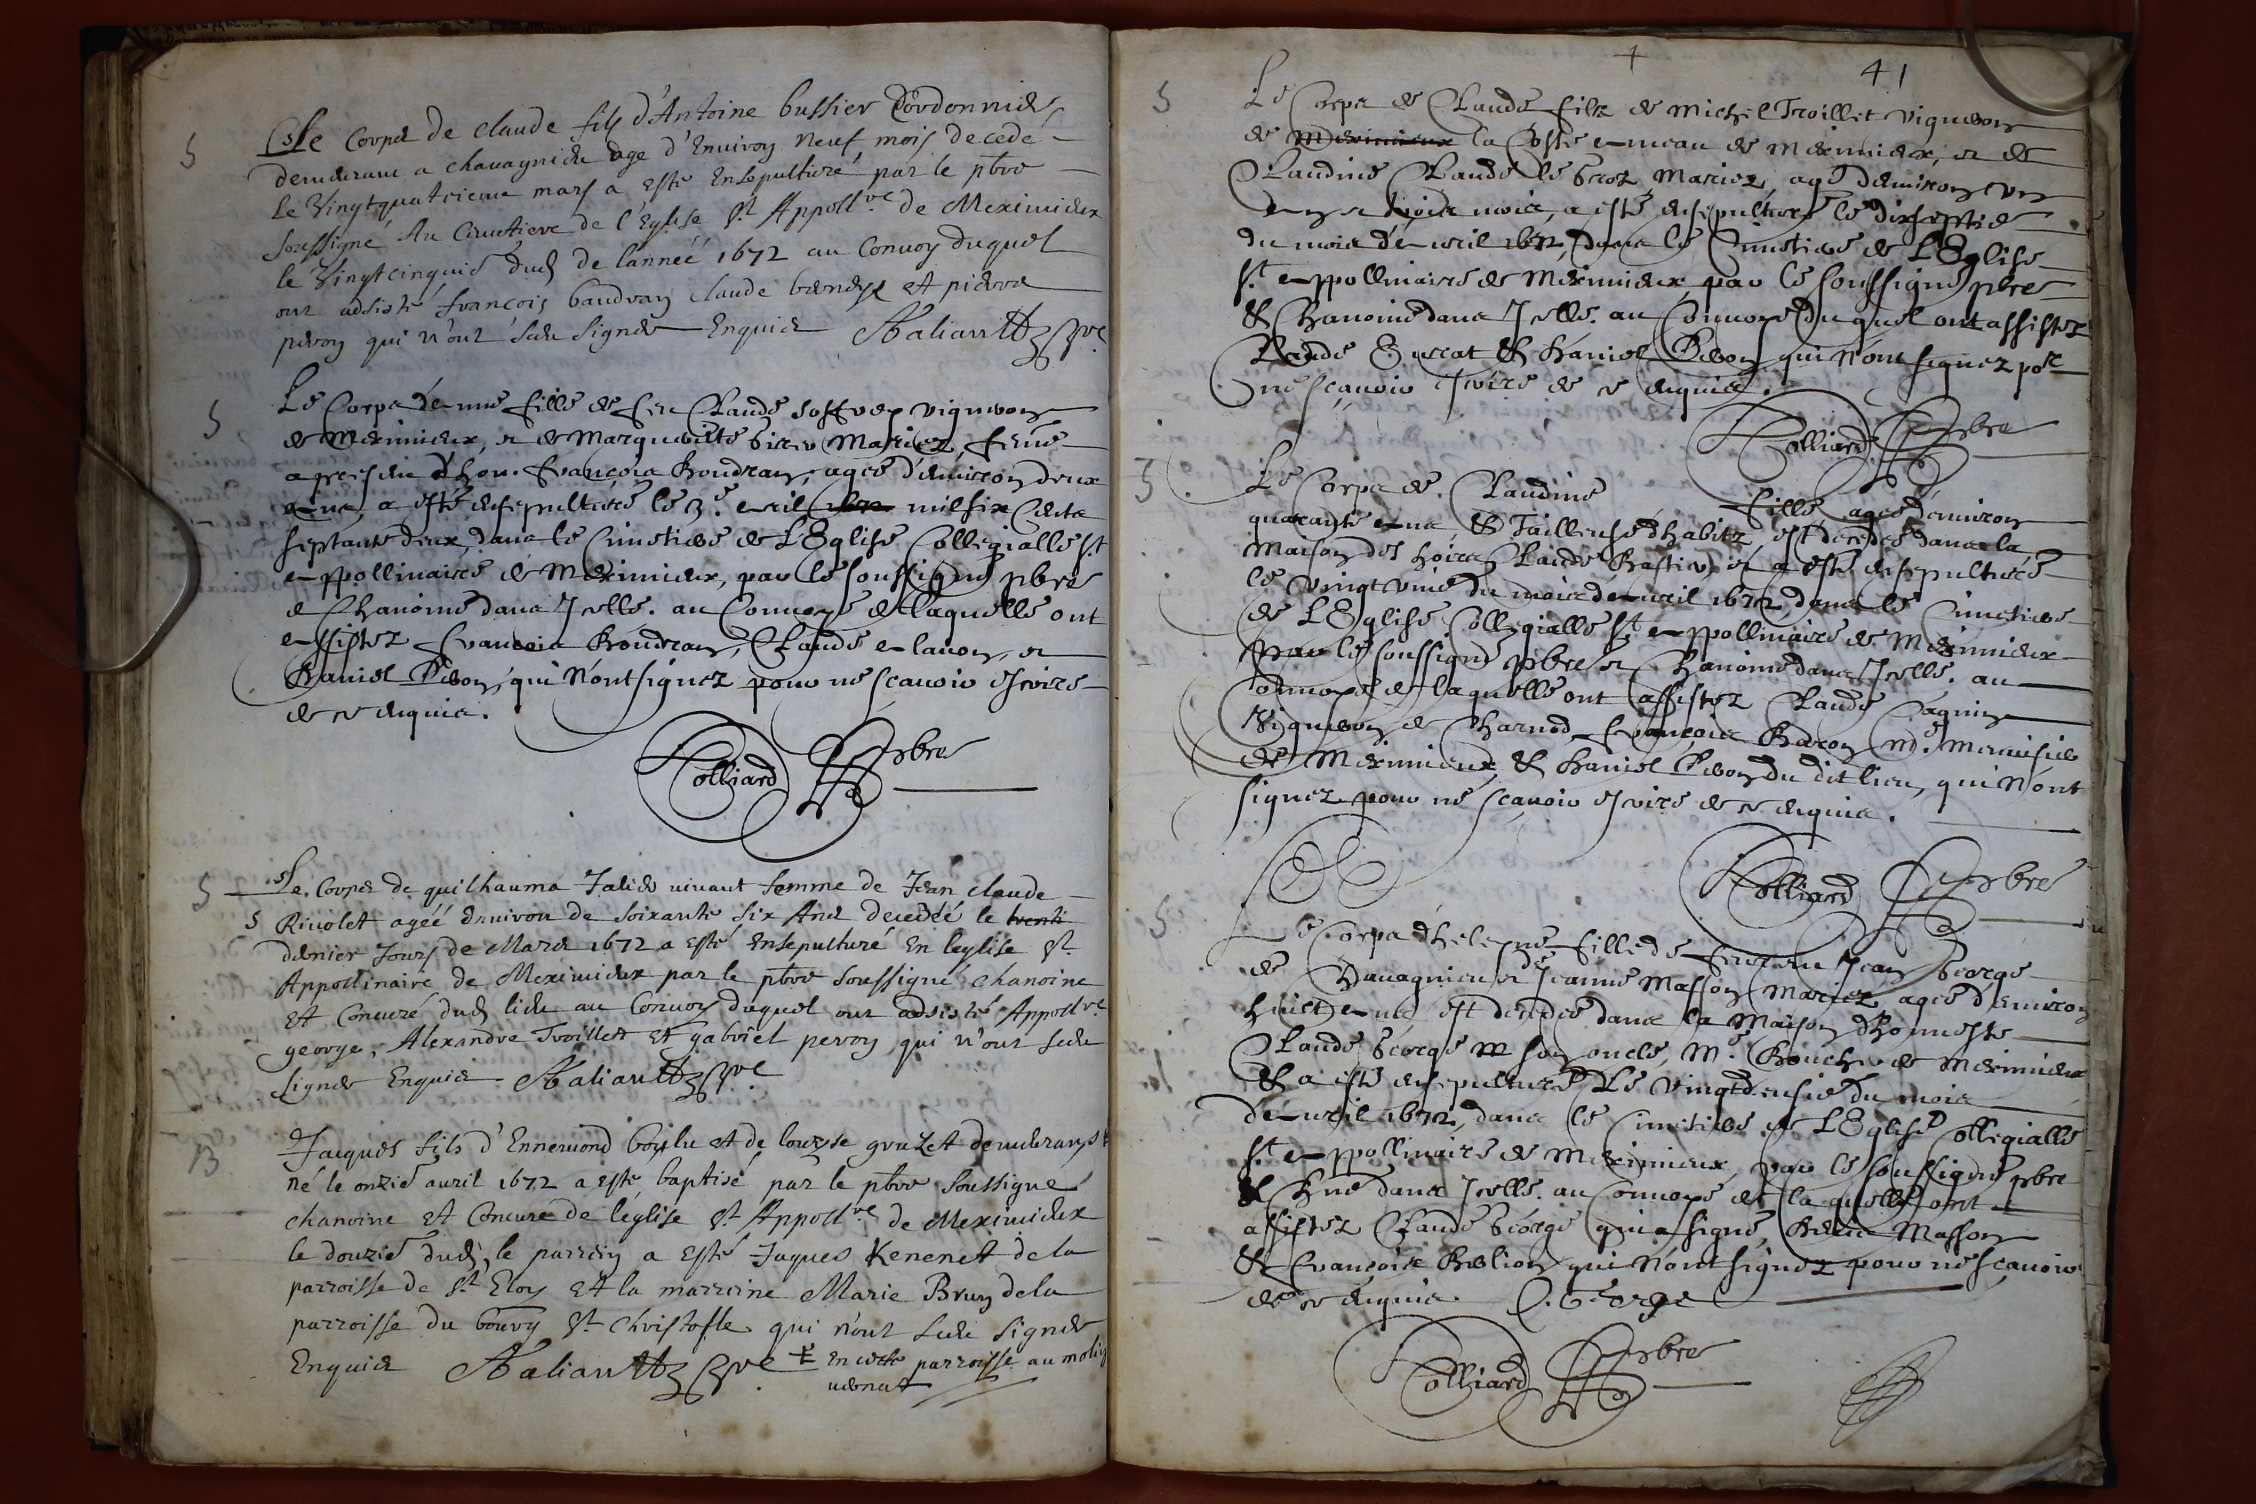 S
Le Corps de claude fils d'Antoine bussier Cordonnier
demeurant a chavagnieu age d'Environ Neuf mois decedé
le Vingtquatrieme mars a esté Ensepulturé par le pbre
soussigné Au Cimetiere de l'Eglise St Appollre de Meximieux
le Vingtcinquie dud de lannéé 1672 au Convoy duquel
ont adsisté francois baudran claude et pierre
peron qui n'ont sceu signer Enquis Baliautt pbre
S
Le Corps de une fille de feu Claude vigneron
de Meximieux, et de Marguerite Mariez, feüe
apresent d'hon. François Boudran, agée d'environ deux
ans, a esté ensepulturé le 3e. avril 1672 mil six Cents
septante deux, dans le Cimetiere de L'Eglise Collegialle St
appollinaire de Meximieux, par le soussigné pbre
& Chanoine dans Icelle. au Convoye de laquelle ont
assistez François Boudran, Claude alavon, et
Daniel Peron, qui N'ont signez pour ne sçavoir escrire
de ce enquis.
Colliard pbre
S
Le Corps de guilhauma vivant femme de Jean claude
S
Rivolet agéé Environ de soixante six Ans decedéé le venti
dernier Jours de Mars 1672 a esté Ensepulturé En leglise St
Appollinaire de Meximieux par le pbre soussigné chanoine
et Concuré dud lieu au Convoy duquel ont adsisté Appollre
george, Alexandre Troillet et gabriel peron qui n'ont sceu
signer Enquis Baliautt pbre
B
Jacques fils d'Ennemond et de louyse gruzet demeurans
né le onzie avril 1672 a esté baptisé par le pbre soussigné
chanoine et Concuré de léglise St Appollre de Meximieux
le douzie dud, le parrein a esté Jaques Kenenet de la
parroisse de St Eloy et la marreine Marie Brun de la
parroisse du bourg St Christofle qui n'ont sceu signer
Enquis Baliautt pbre En cette parroisse au molin
+ 41
S
Le Corps de Claude fils de Michel Troillet vigneron
de Meximieux la Coste hameau de Meximieux, et de
Claudine Claude Mariez, agé denviron un
an et trois mois, a esté ensepulturé le dixseptie
du mois d'avril 1672, dans le Cimetiere de L'Eglise
St appollinaire de Meximieux, par le soussigné pbre
& Chanoine dans Icelle. au Convoye duquel ont assistez
Claude & Daniel Peron, qui N'ont signez por
ne sçavoir escrire de ce enquis.
Colliard pbre
S
Le Corps de Claudine fille, agée denviron
quarante ans & Tailleuse d'habitz, est decedée dans la
Maison des hoirs Claude et a esté ensepulturé
le vingt une du mois davril 1672 dans le Cimetiere
de L'Eglise Collegialle St appollinaire de Meximieux
par le soussigné pbre et Chanoine dans Icelle. au
Convoye de laquelle ont assistez Claude
Vigneron de Charnod, François Baron Me Menuisier
de Meximieux, & Daniel Peron du dit lieu, qui N'ont
signez pour ne sçavoir escrire de ce enquis.
Colliard pbre
S
Le Corps d'heleyne fille de Jean George
de Chavagnieu et de Jeanne Masson Mariez, agée d'environ
huict ans est decedée dans la Maison d'honneste
Claude George son oncle, Me. de Meximieux
& a esté ensepulturé Le vingtdeusie du mois
d'avril 1672, dans le Cimetiere de L'Eglise Collegialle
St appollinaire de Meximieux, par le soussigné pbre
& Chne dans Icelle. au Convoye de la quelle ont
assistez Claude George qui a signé, Masson
& François qui N'ont signez pour ne sçavoir
de ce enquis. C. George
Colliard pbre